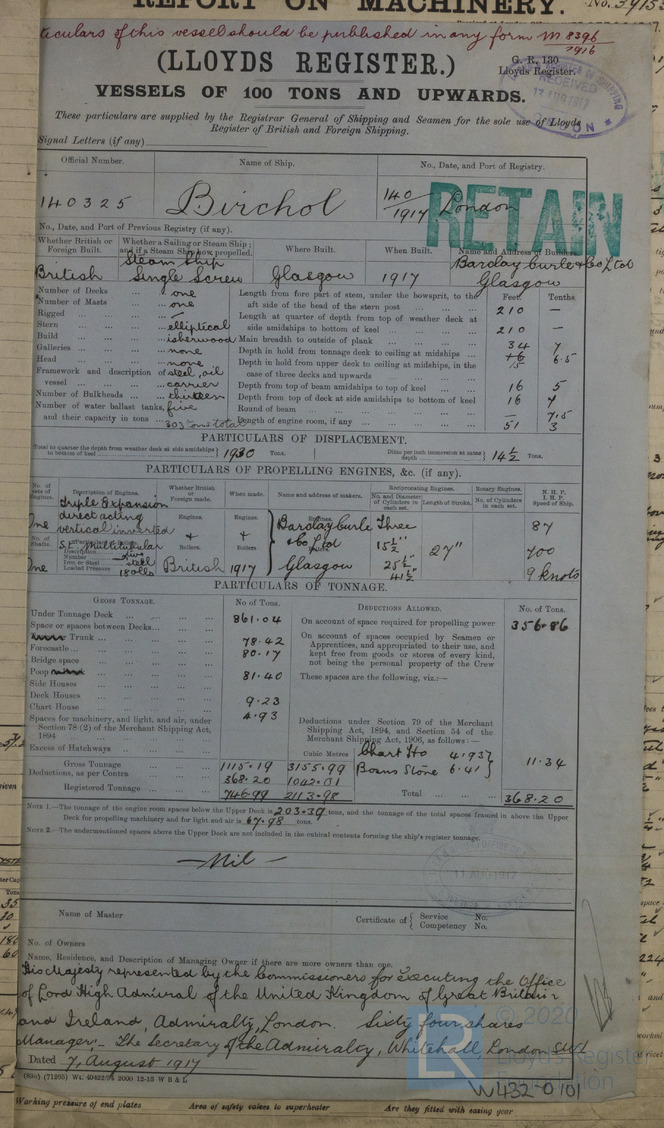 REPORT ON MACHINERY. No. 3915
ticulars of this vessel should be published in any form M 8396
1916
(LLOYDS REGISTER.)
G. R. 130
Lloyds Register.
RECEIVED
VESSELS OF 100 TONS AND UPWARDS.
These particulars are supplied by the Registrar General of Shipping and Seamen for the sole use of Lloyds
Register of British and Foreign Shipping.
Signal Letters (if any)
Official Number. Name of Ship. No., Date, and Port of Registry.
140325 Birchol 140/1917 London
RETAIN
No., Date, and Port of Previous Registry (if any).
Whether British or Foreign Built. Whether a Sailing or Steam Ship; and if a Steam Ship how propelled. Where Built. When Built. Name and Address of Builders.
British Steam Ship Single Screw Glasgow 1917 Barclay Curle & Co Ltd Glasgow
Number of Decks ... one
Number of Masts ... one
Rigged ...
Stern ... elliptical
Build ... isherwood
Galleries ... none
Head ... none
Framework and description of vessel ... steel, oil carrier
Number of Bulkheads ... thirteen
Number of water ballast tanks, and their capacity in tons ... five 303 tons total
Feet. Tenths.
Length from fore part of stem, under the bowsprit, to the aft side of the head of the stern post ... 210 —
Length at quarter of depth from top of weather deck at side amidships to bottom of keel ... 210 —
Main breadth to outside of plank ... 34 7
Depth in hold from tonnage deck to ceiling at midships ...
Depth in hold from upper deck to ceiling at midships, in the case of three decks and upwards ...
15 6.5
Depth from top of beam amidships to top of keel ... 16 5
Depth from top of deck at side amidships to bottom of keel 16 7
Round of beam ... — 7.5
Length of engine room, if any ... 51 3
PARTICULARS OF DISPLACEMENT.
Total to quarter the depth from weather deck at side amidships to bottom of keel 1930 Tons. Ditto per inch immersion at same depth 14½ Tons.
PARTICULARS OF PROPELLING ENGINES, &c. (if any).
No. of sets of Engines. Description of Engines. Whether British or Foreign made. When made. Name and address of makers. Reciprocating Engines. Rotary Engines. N. H. P. I. H. P. Speed of Ship.
No. and Diameter of Cylinders in each set. Length of Stroke. No. of Cylinders in each set.
One Triple Expansion direct acting vertical inverted
Engines. Engines. Engines.
Barclay Curle & Co Ltd Glasgow
Three 15½" 25½" 41½" 27"
87
700
9 knots
No. of Shafts. One
S.E. Multitubular
Description
Number
Iron or Steel steel
Loaded Pressure 180 lbs
Boilers. Boilers
British 1917
PARTICULARS OF TONNAGE.
GROSS TONNAGE. No of Tons. DEDUCTIONS ALLOWED. No. of Tons.
Under Tonnage Deck ... 861.04
Space or spaces between Decks ...
Trunk ... 78.42
Forecastle ... 80.17
Bridge space ...
Poop ... 81.40
Side Houses ...
Deck Houses ... 9.23
Chart House ... 4.93
Spaces for machinery, and light, and air, under Section 78 (2) of the Merchant Shipping Act, 1894 ...
Excess of Hatchways ...
Cubic Metres
Gross Tonnage ... 1115.19 3155.99
Deductions, as per Contra ... 368.20 1042.01
Registered Tonnage ... 746.99 2113.98
On account of space required for propelling power 356.86
On account of spaces occupied by Seamen or Apprentices, and appropriated to their use, and kept free from goods or stores of every kind, not being the personal property of the Crew
These spaces are the following, viz.:—
Deductions under Section 79 of the Merchant Shipping Act, 1894, and Section 54 of the Merchant Shipping Act, 1906, as follows:—
Chart Ho 4.93
Bosns Store 6.41
11.34
Total ... 368.20
NOTE 1.—The tonnage of the engine room spaces below the Upper Deck is 203.39 tons, and the tonnage of the total spaces framed in above the Upper
Deck for propelling machinery and for light and air is 67.98 tons.
NOTE 2.—The undermentioned spaces above the Upper Deck are not included in the cubical contents forming the ship's register tonnage.
— Nil —
11 AUG 1917
Name of Master Certificate of { Service No. Competency No.
No. of Owners
Name, Residence, and Description of Managing Owner if there are more owners than one.
His Majesty represented by the Commissioners for executing the Office
of Lord High Admiral of the United Kingdom of Great Britain
and Ireland, Admiralty, London. Sixty four shares
Manager:- The Secretary of the Admiralty, Whitehall, London, SW1
Dated 7, August 1917
2000 12-15 W B & L
© 2020
LR
Lloyd's Register
W432-0101
Working pressure of end plates Area of safety valves to superheater Are they fitted with easing gear